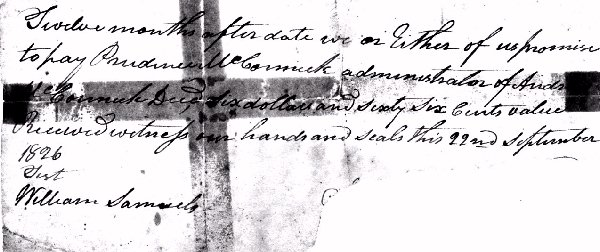 Twelve months after date we or Either of us promise
to pay Prudence McCormick administrator of Andr
McCormick Decd six dollars and sixty six Cents value
Received witness our hands and seals this 22nd September
1826
Test
William Samuels